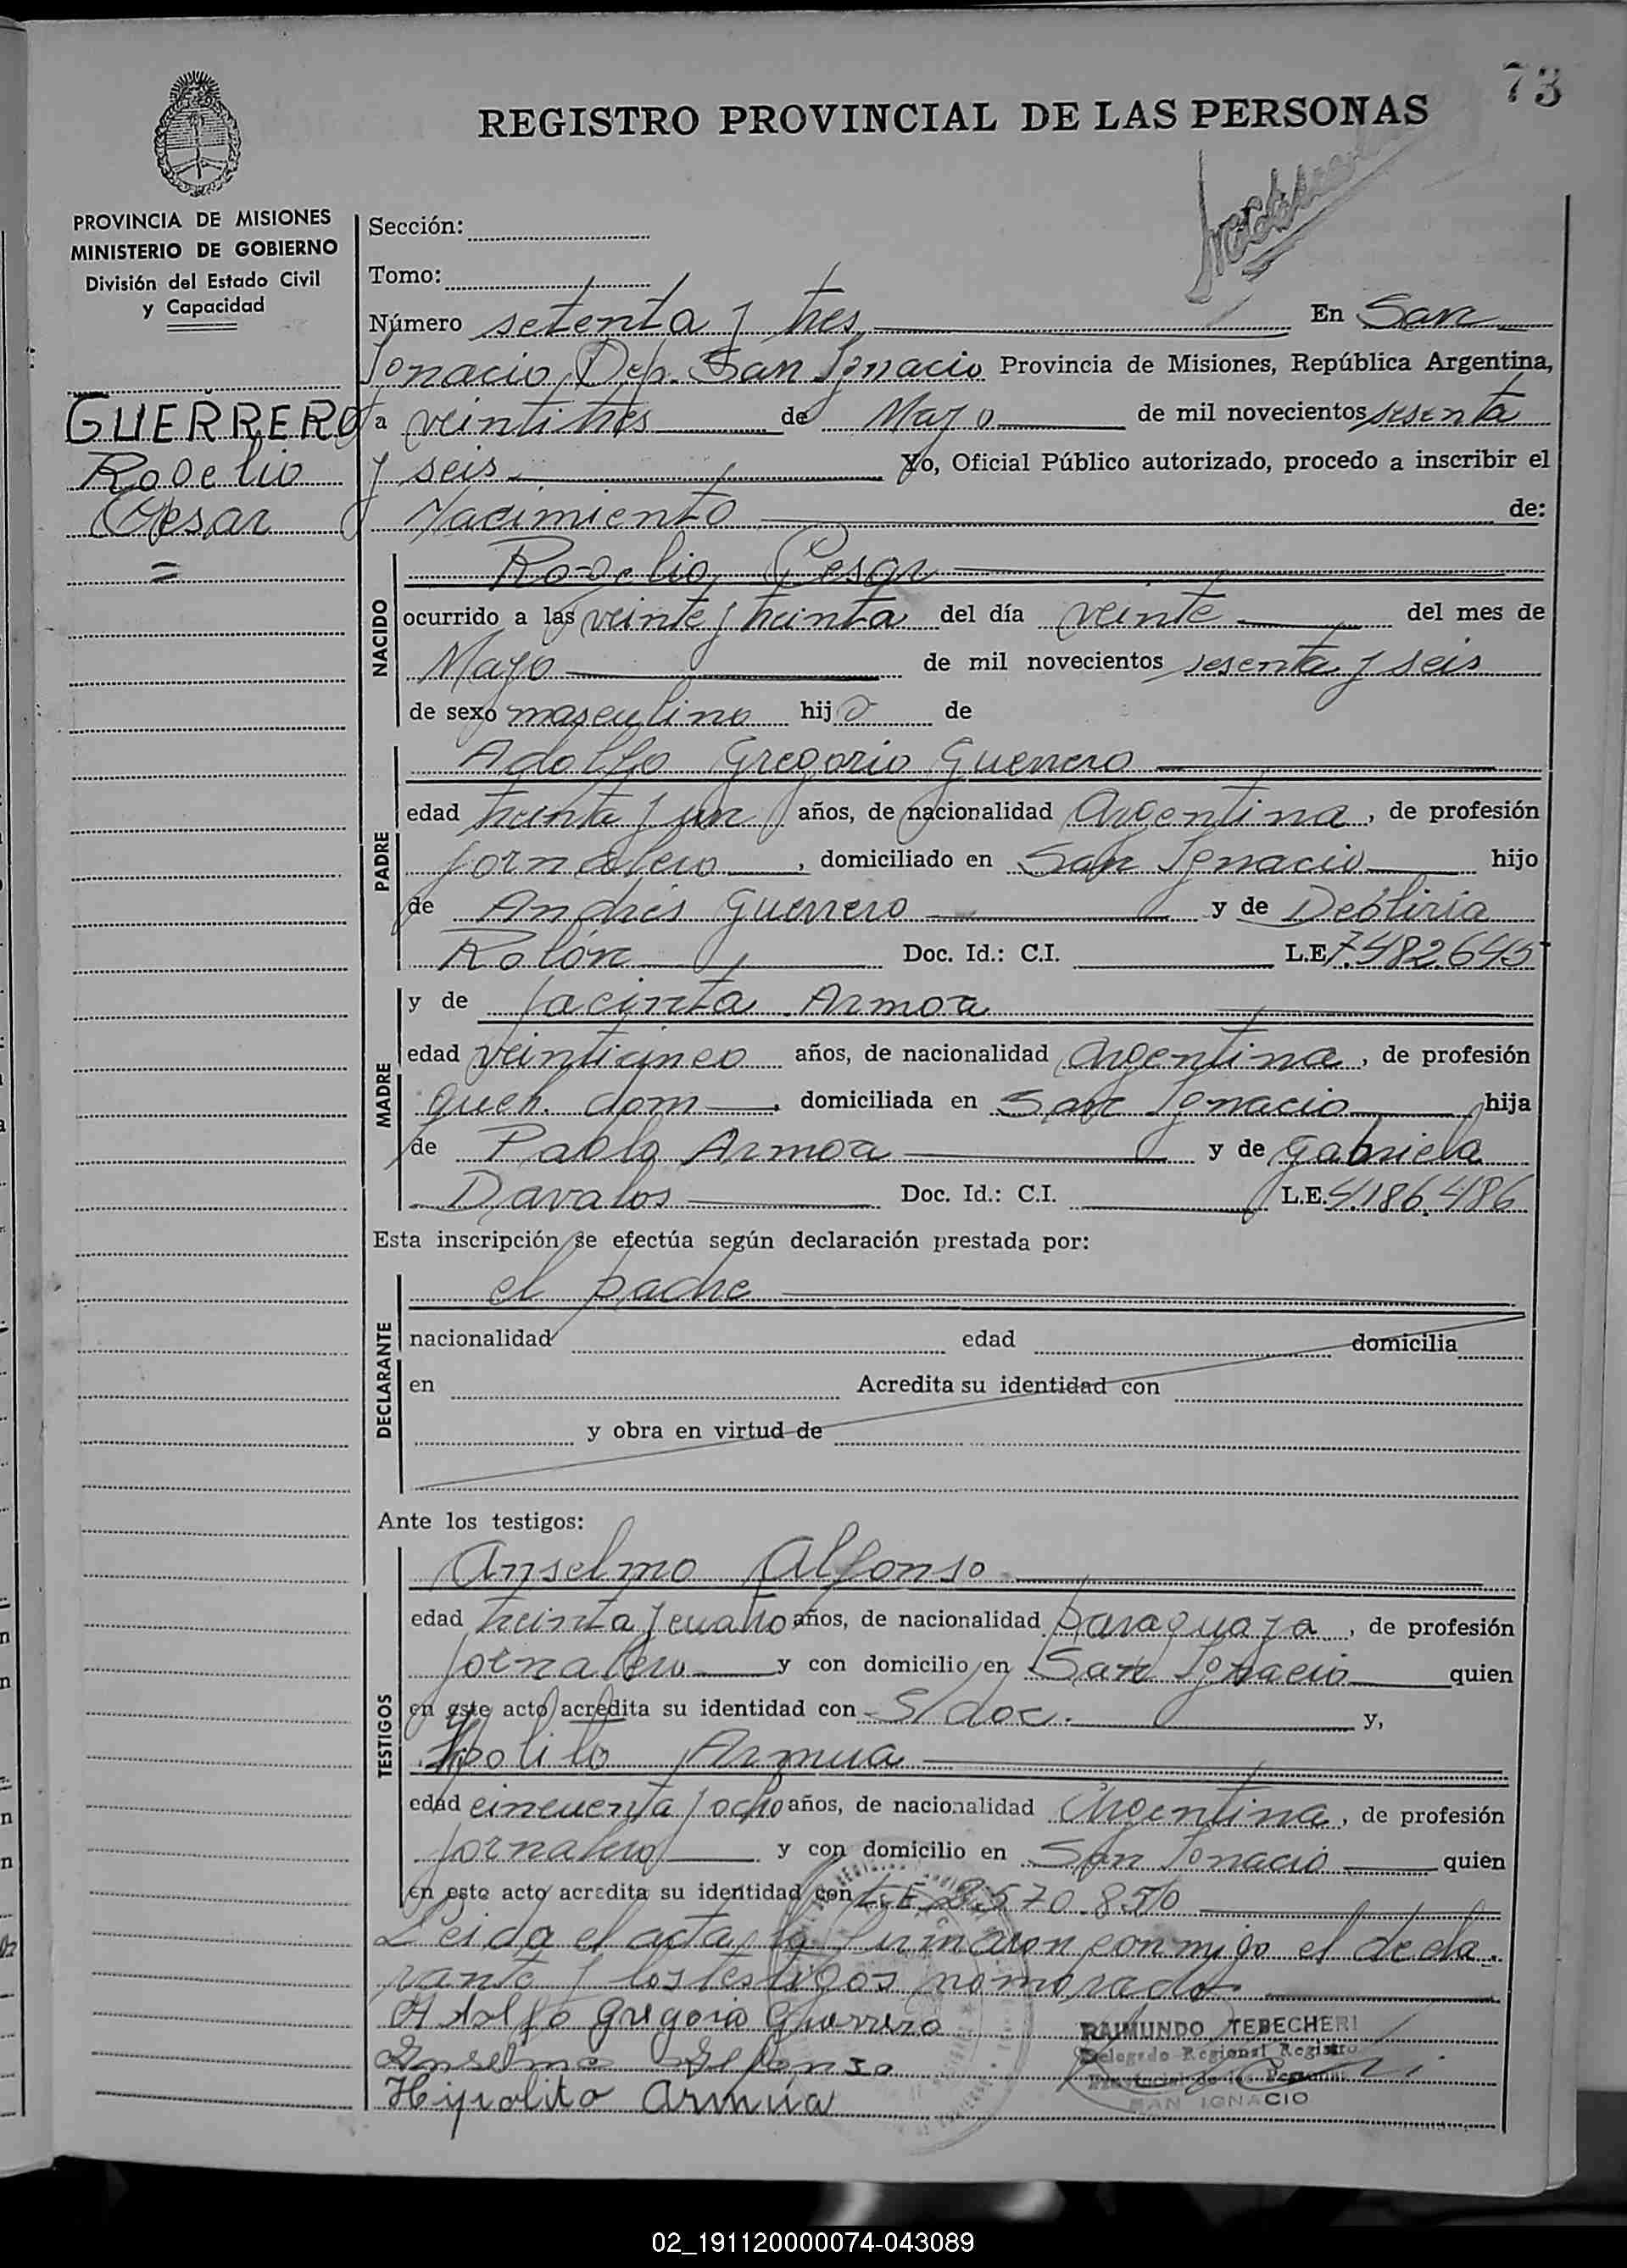 73
REGISTRO PROVINCIAL DE LAS PERSONAS
PROVINCIA DE MISIONES
MINISTERIO DE GOBIERNO
División del Estado Civil
y Capacidad
GUERRERO
Rogelio
Cesar
Sección:
Tomo:
Número setenta y tres En San
Ignacio, Dep. San Ignacio Provincia de Misiones, República Argentina,
a veintitrés de Mayo de mil novecientos sesenta
y seis Yo, Oficial Público autorizado, procedo a inscribir el
Nacimiento de:
NACIDO
Rogelio Cesar
ocurrido a las veinte y treinta del día veinte del mes de
Mayo de mil novecientos sesenta y seis
de sexo masculino hijo de
PADRE
Adolfo Gregorio Guerrero
edad treinta y un años, de nacionalidad Argentina, de profesión
jornalero, domiciliado en San Ignacio hijo
de Andrés Guerrero y de
Rolón Doc. Id.: C.I. L.E. 7.482.645
MADRE
y de Jacinta Armoa
edad veinticinco años, de nacionalidad Argentina, de profesión
queh. dom, domiciliada en San Ignacio hija
de Pablo Armoa y de Gabriela
Davalos Doc. Id.: C.I. L.E. 4.186.486
Esta inscripción se efectúa según declaración prestada por:
DECLARANTE
el padre
nacionalidad edad domicilia
en Acredita su identidad con
y obra en virtud de
Ante los testigos:
TESTIGOS
Anselmo Alfonso
edad treinta y cuatro años, de nacionalidad paraguaya, de profesión
jornalero y con domicilio en San Ignacio quien
en este acto acredita su identidad con S/doc. y,
Hipolito Armua
edad cincuenta y ocho años, de nacionalidad Argentina, de profesión
jornalero y con domicilio en San Ignacio quien
en este acto acredita su identidad con L.E. 2.570.850
Leida el acta, la firmaron conmigo el decla-
rante y los testigos nombrados
Adolfo Gregorio Guerrero
Anselmo Alfonso
Hipolito Armúa
RAIMUNDO TEBECHERI
Delegado Regional Registro
Provincial de las Personas
SAN IGNACIO
02_191120000074-043089